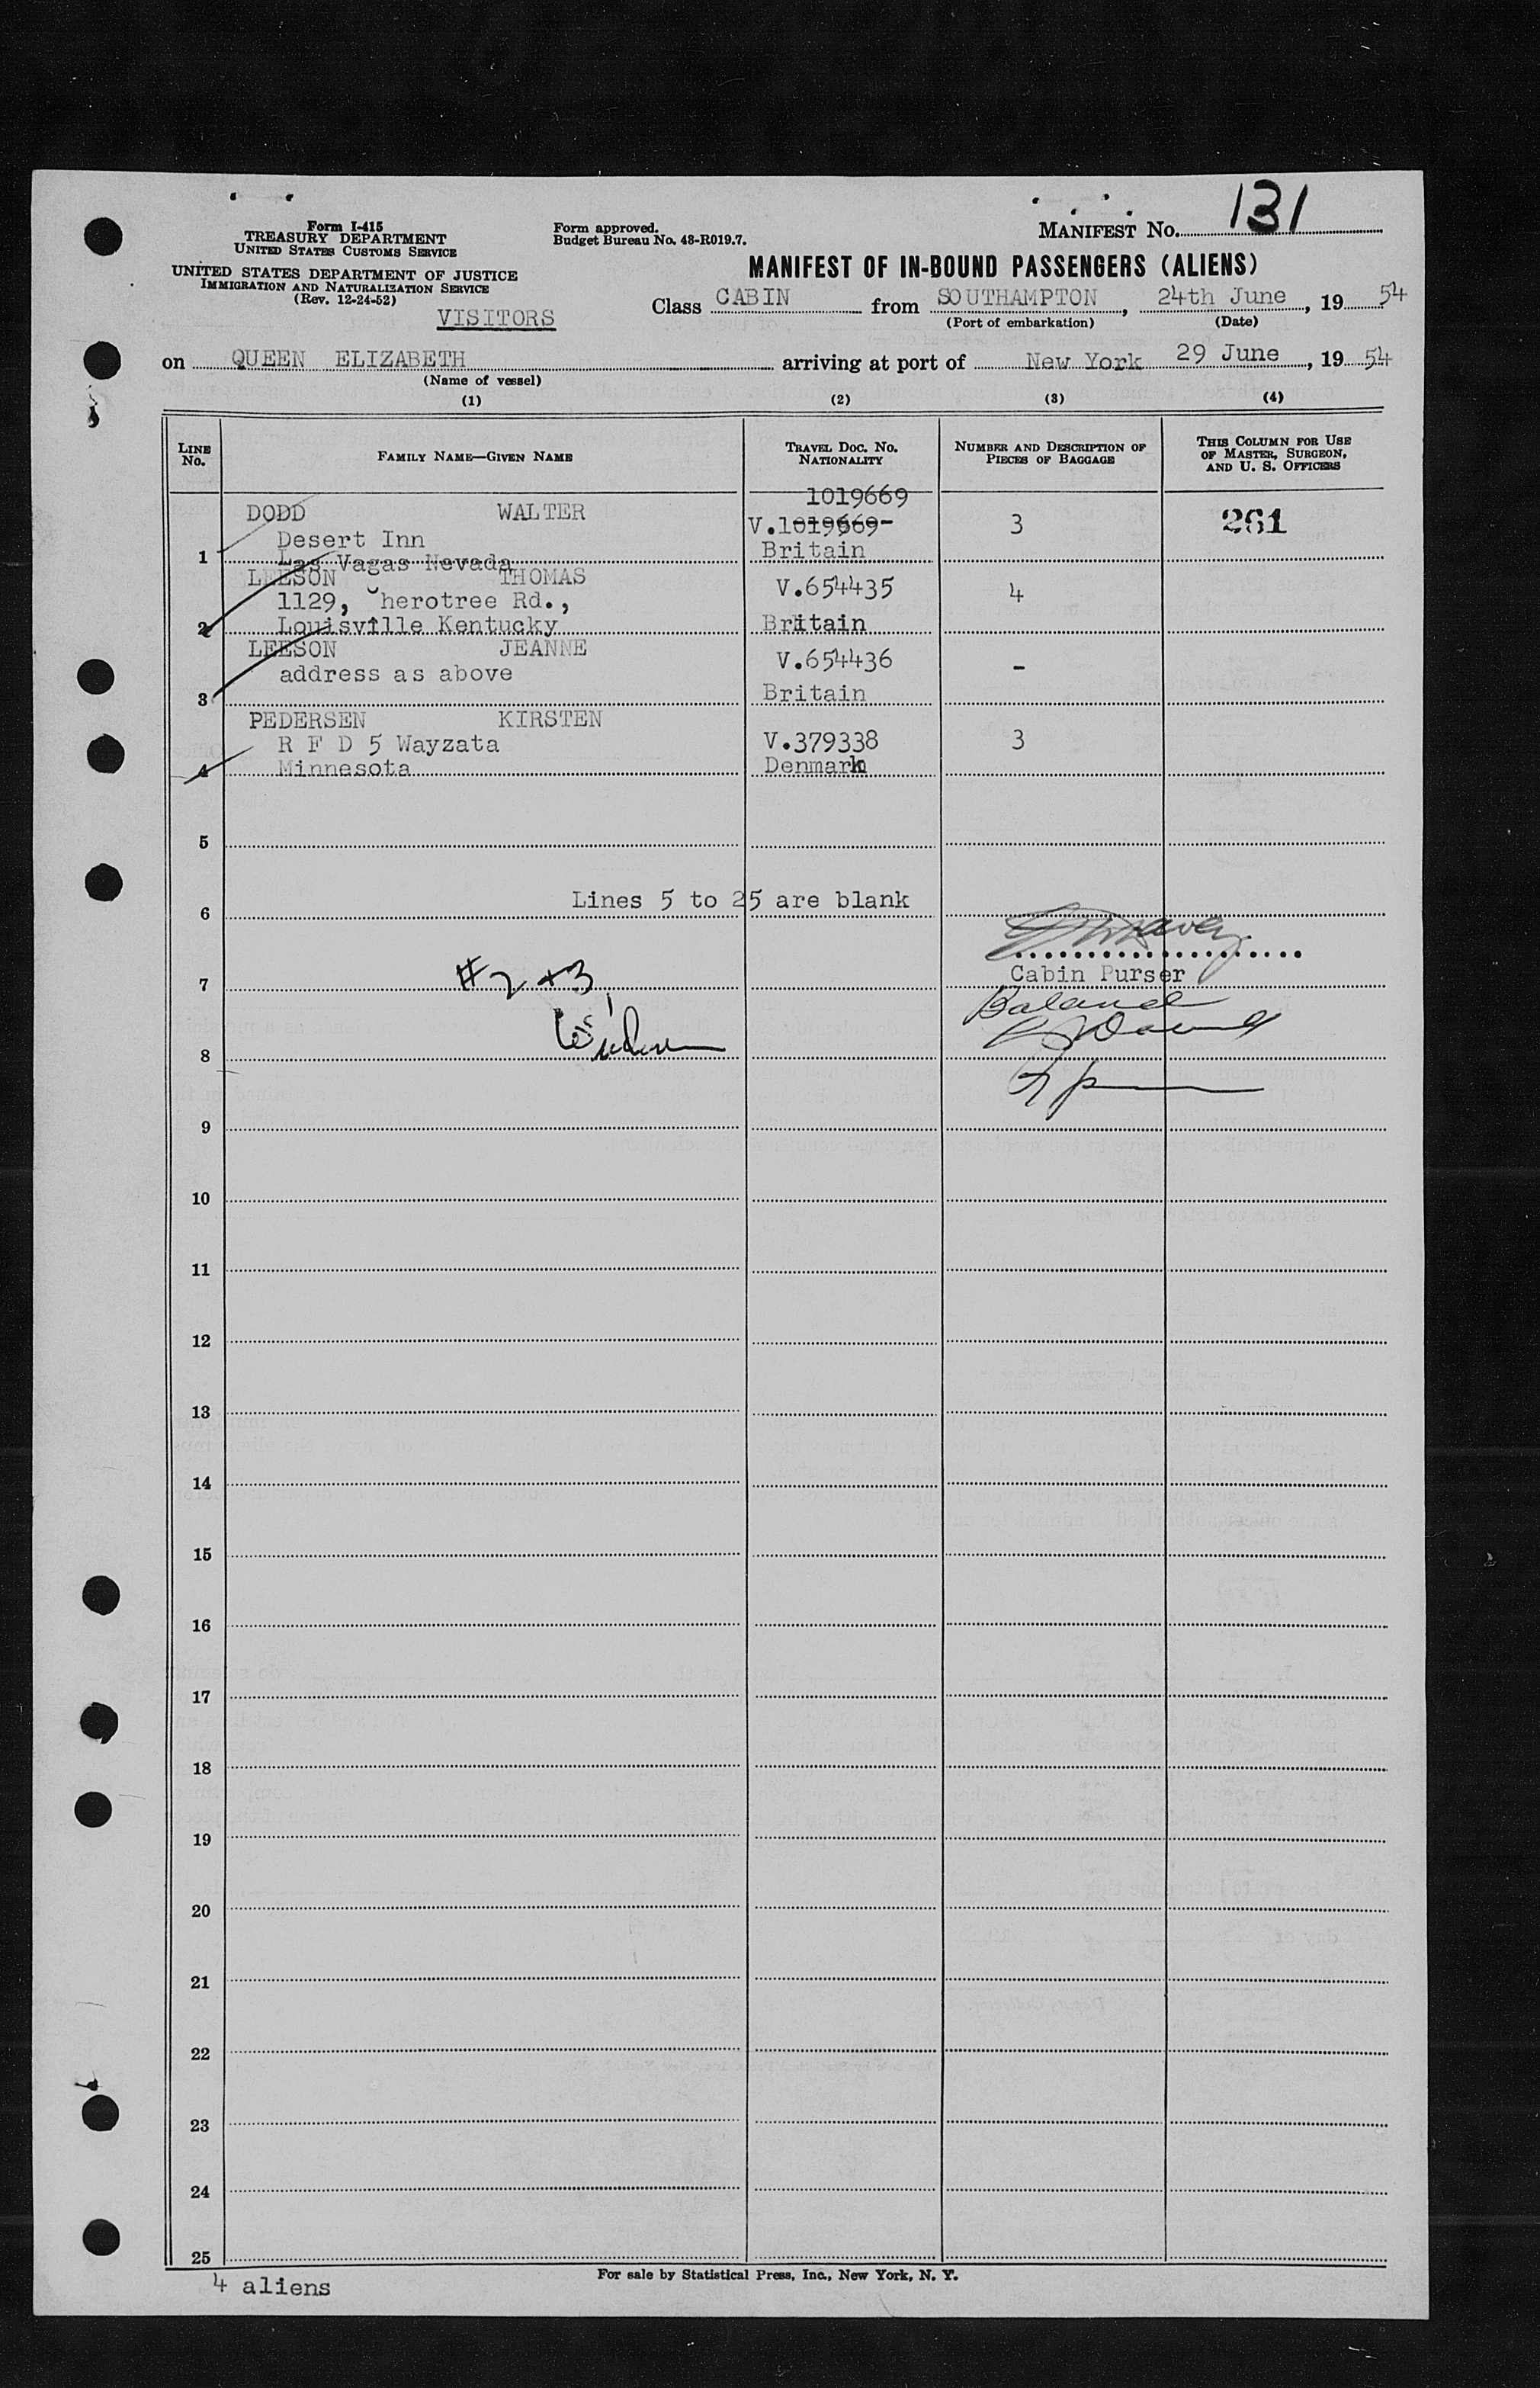 131
Form I-415
TREASURY DEPARTMENT
UNITED STATES CUSTOMS SERVICE
Form approved.
Budget Bureau No. 43-R019.7.
MANIFEST NO.
UNITED STATES DEPARTMENT OF JUSTICE
IMMIGRATION AND NATURALIZATION SERVICE
(Rev. 12-24-52)
MANIFEST OF IN-BOUND PASSENGERS (ALIENS)
VISITORS
Class CABIN from SOUTHAMPTON, 24th June, 19 54
(Port of embarkation) (Date)
on QUEEN ELIZABETH arriving at port of New York 29 June, 19 54
(Name of vessel)
(1) (2) (3) (4)
LINE No. FAMILY NAME—GIVEN NAME TRAVEL DOC. NO. NATIONALITY NUMBER AND DESCRIPTION OF PIECES OF BAGGAGE THIS COLUMN FOR USE OF MASTER, SURGEON, AND U. S. OFFICERS
1019669
DODD WALTER V.1019669 3 261
Desert Inn
1 Las Vagas Nevada Britain
LEESON THOMAS V.654435 4
1129, Cherotree Rd.,
2 Louisville Kentucky Britain
LEESON JEANNE V.654436 -
address as above
3 Britain
PEDERSEN KIRSTEN
R F D 5 Wayzata V.379338 3
4 Minnesota Denmark
5
Lines 5 to 25 are blank
6
Cabin Purser
7 #2 + 3
8
9
10
11
12
13
14
15
16
17
18
19
20
21
22
23
24
25
4 aliens
For sale by Statistical Press, Inc., New York, N. Y.